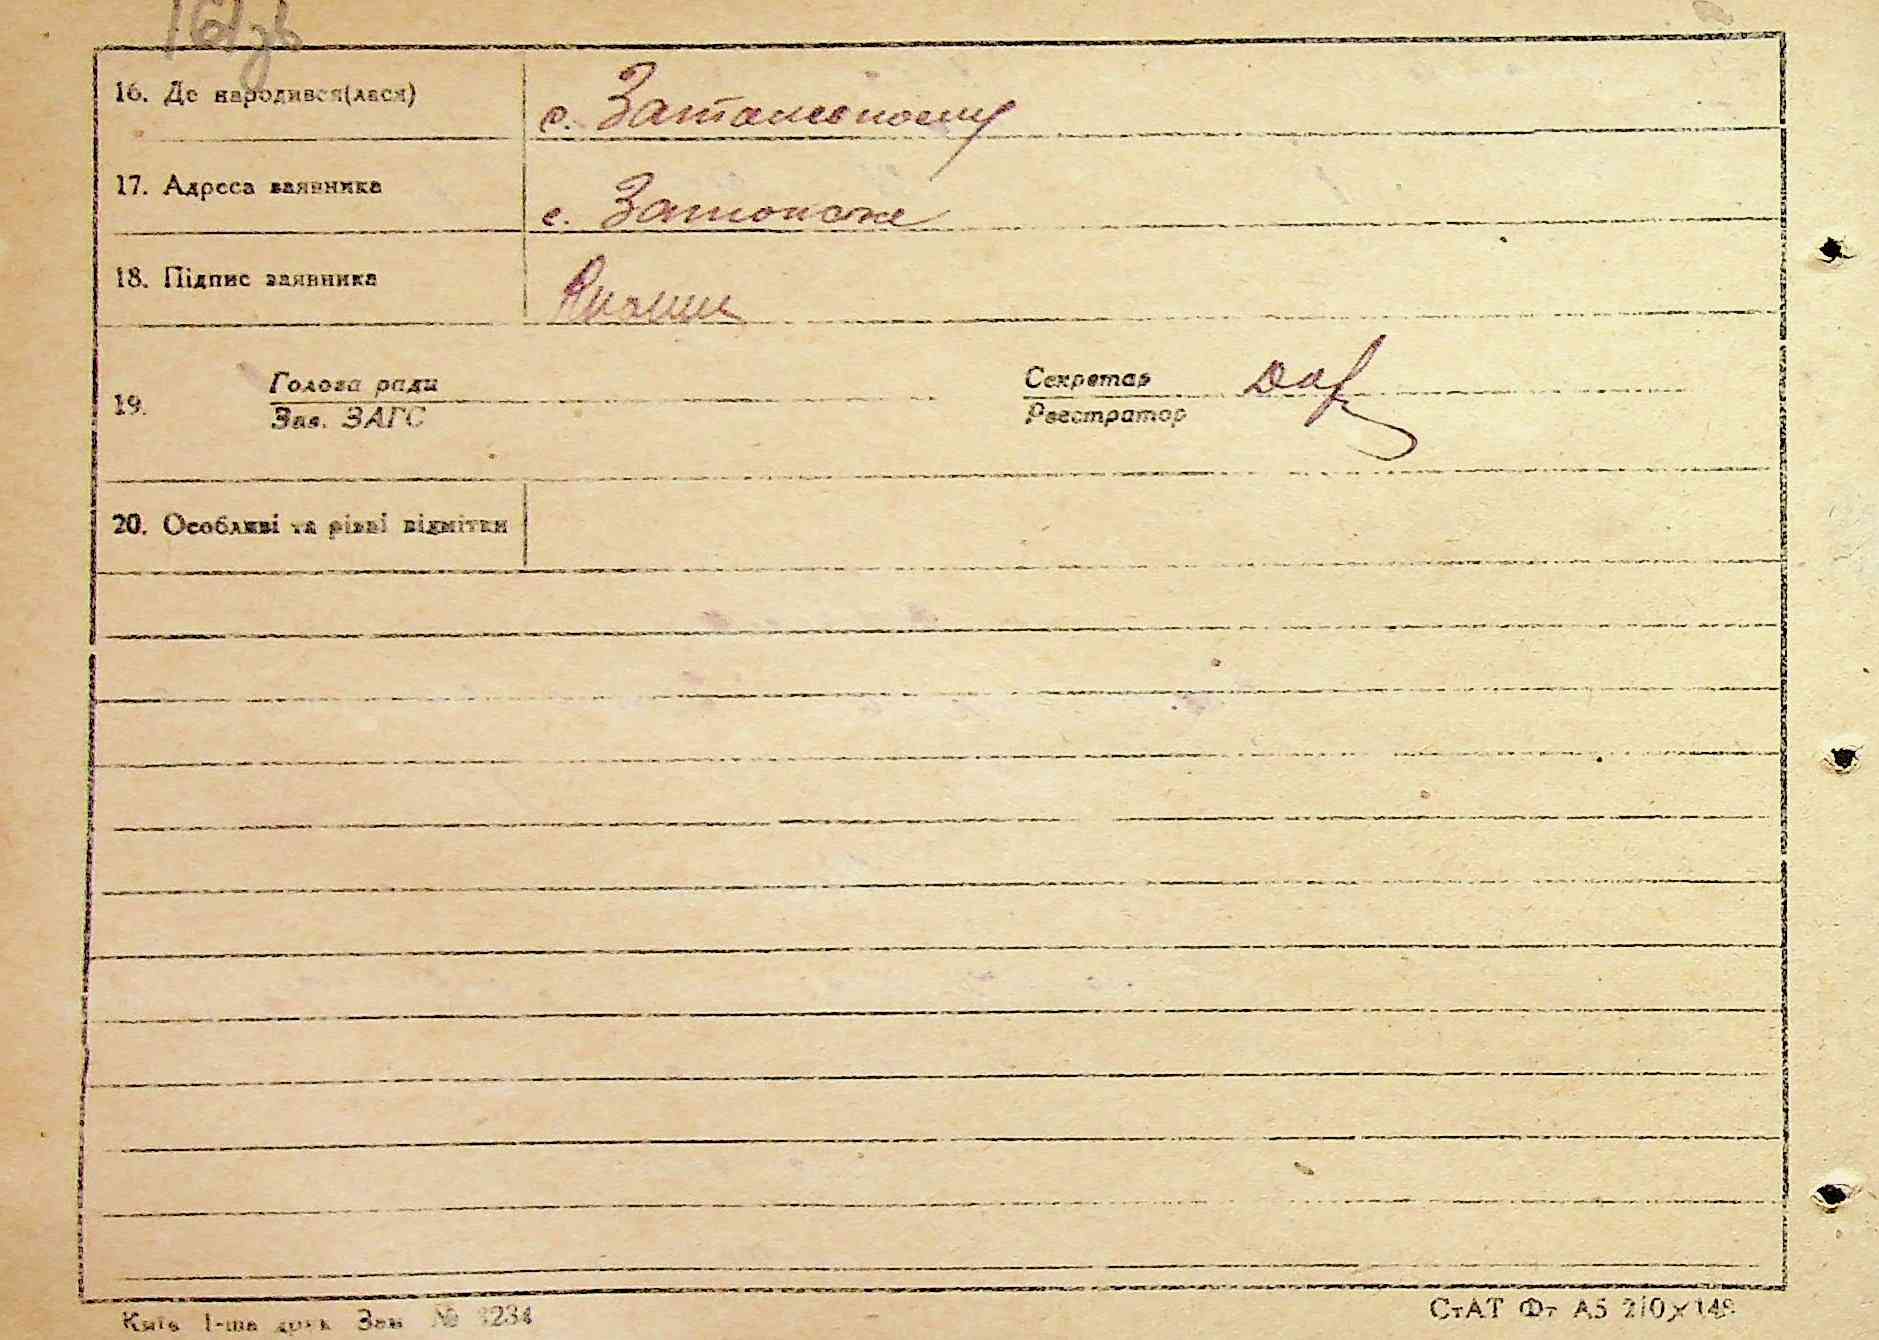 16. Де народився(лася)
с.
17. Адреса заявника
с. Затонське
18. Підпис заявника
19. Голова ради
Зав. ЗАГС
Секретар
Реєстратор
20. Особливі та різні відмітки
Київ 1-ша друк. Зам № 3234
СтАТ Фт А5 210×148